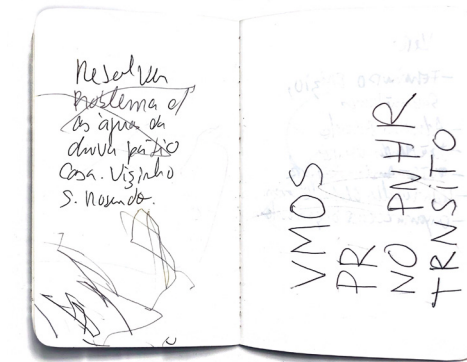 Resolver
Problema c/
as água da
chuva pátio
Casa. Vizinho
S. Rosendo.
VMOS
PR
NO PNHR
TRNSITO